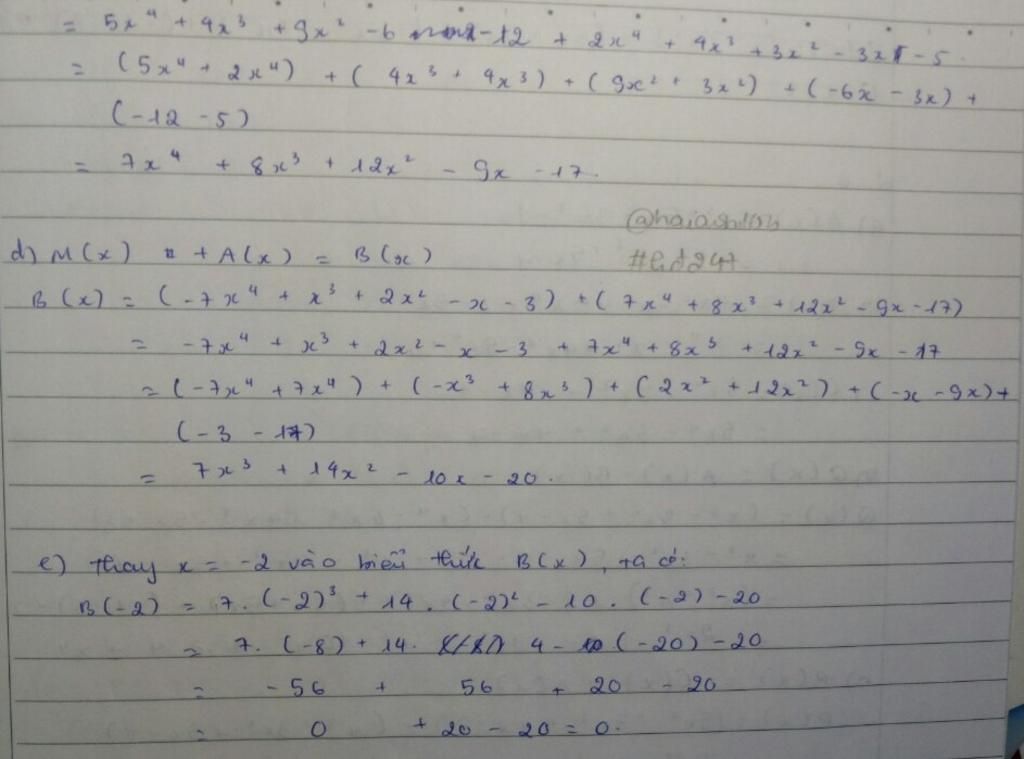 = 5x⁴ + 4x³ + 9x² - 6 -12 + 2x⁴ + 4x³ + 3x² - 3x - 5
= (5x⁴ + 2x⁴) + (4x³ + 4x³) + (9x² + 3x²) + (-6x - 3x) +
(-12 - 5)
= 7x⁴ + 8x³ + 12x² - 9x - 17.
d) M(x) + A(x) = B(x)
B(x) = (-7x⁴ + x³ + 2x² - x - 3) + (7x⁴ + 8x³ + 12x² - 9x - 17)
= -7x⁴ + x³ + 2x² - x - 3 + 7x⁴ + 8x³ + 12x² - 9x - 17
= (-7x⁴ + 7x⁴) + (-x³ + 8x³) + (2x² + 12x²) + (-x - 9x) +
(-3 - 17)
= 7x³ + 14x² - 10x - 20.
e) Thay x = -2 vào biểu thức B(x), ta có:
B(-2) = 7. (-2)³ + 14. (-2)² - 10. (-2) - 20
= 7. (-8) + 14. 4 - (-20) - 20
= - 56 + 56 + 20 - 20
= 0 + 20 - 20 = 0.